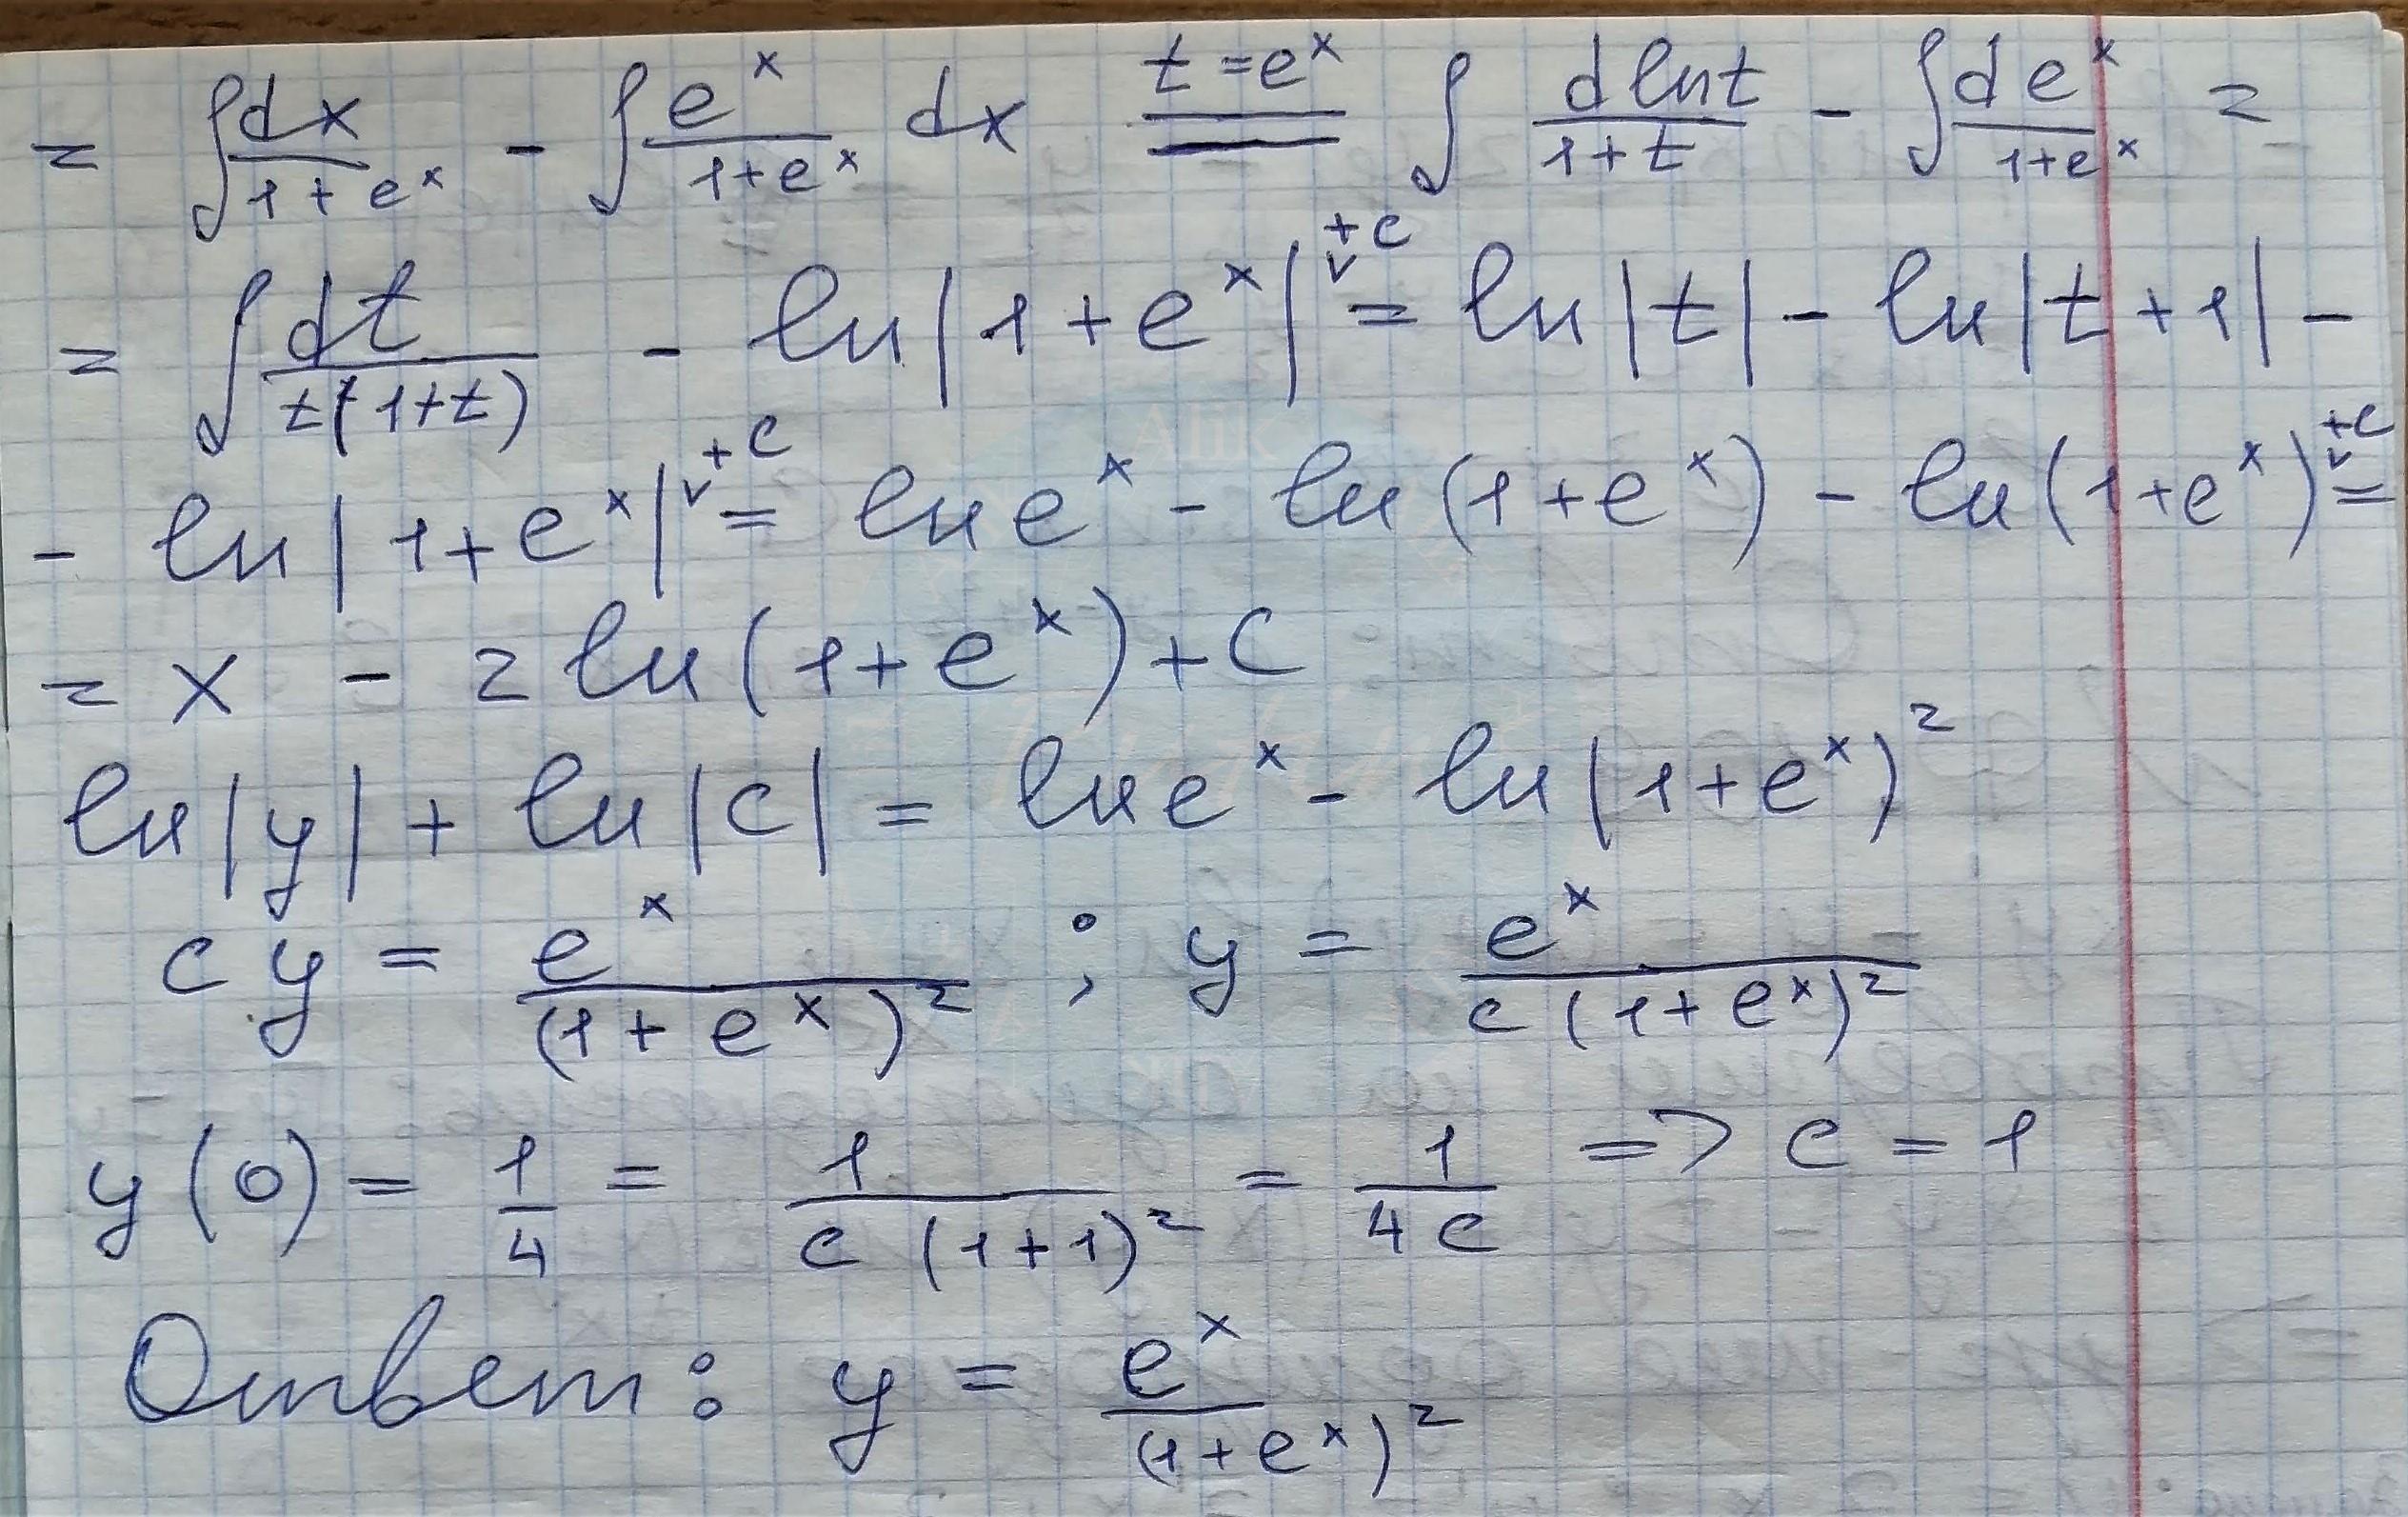 = ∫ dx/(1+e^x) - ∫ e^x/(1+e^x) dx =(t=e^x)= ∫ d ln t/(1+t) - ∫ de^x/(1+e^x) =
= ∫ dt/(t(1+t)) - ln|1+e^x| +c = ln|t| - ln|t+1| -
- ln|1+e^x| +c = ln e^x - ln(1+e^x) - ln(1+e^x) +c =
= x - 2 ln(1+e^x) + C
ln|y| + ln|c| = ln e^x - ln(1+e^x)^2
cy = e^x/(1+e^x)^2 ; y = e^x/(c(1+e^x)^2)
y(0) = 1/4 = 1/(c(1+1)^2) = 1/(4c) => c = 1
Ответ: y = e^x/(1+e^x)^2